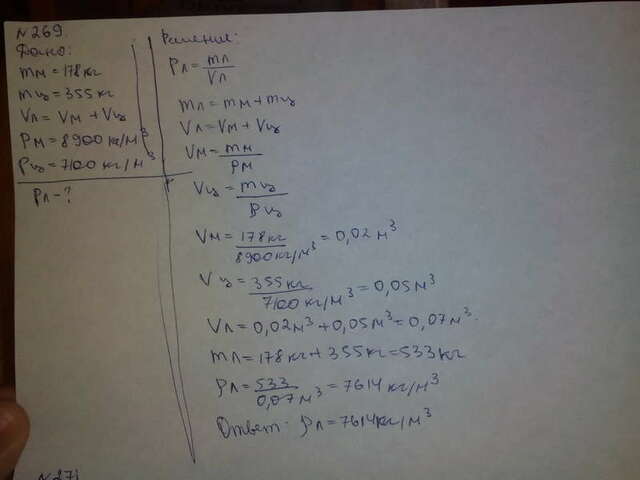 №269.
Дано:
mм=178кг
mц=355кг
Vл=Vм+Vц
ρм=8900кг/м³
ρц=7100кг/м³
ρл-?
Решение:
ρл=mл/Vл
mл=mм+mц
Vл=Vм+Vц
Vм=mм/ρм
Vц=mц/ρц
Vм=178кг/8900кг/м³=0,02м³
Vц=355кг/7100кг/м³=0,05м³
Vл=0,02м³+0,05м³=0,07м³.
mл=178кг+355кг=533кг
ρл=533/0,07м³=7614кг/м³
Ответ: ρл=7614кг/м³
№271